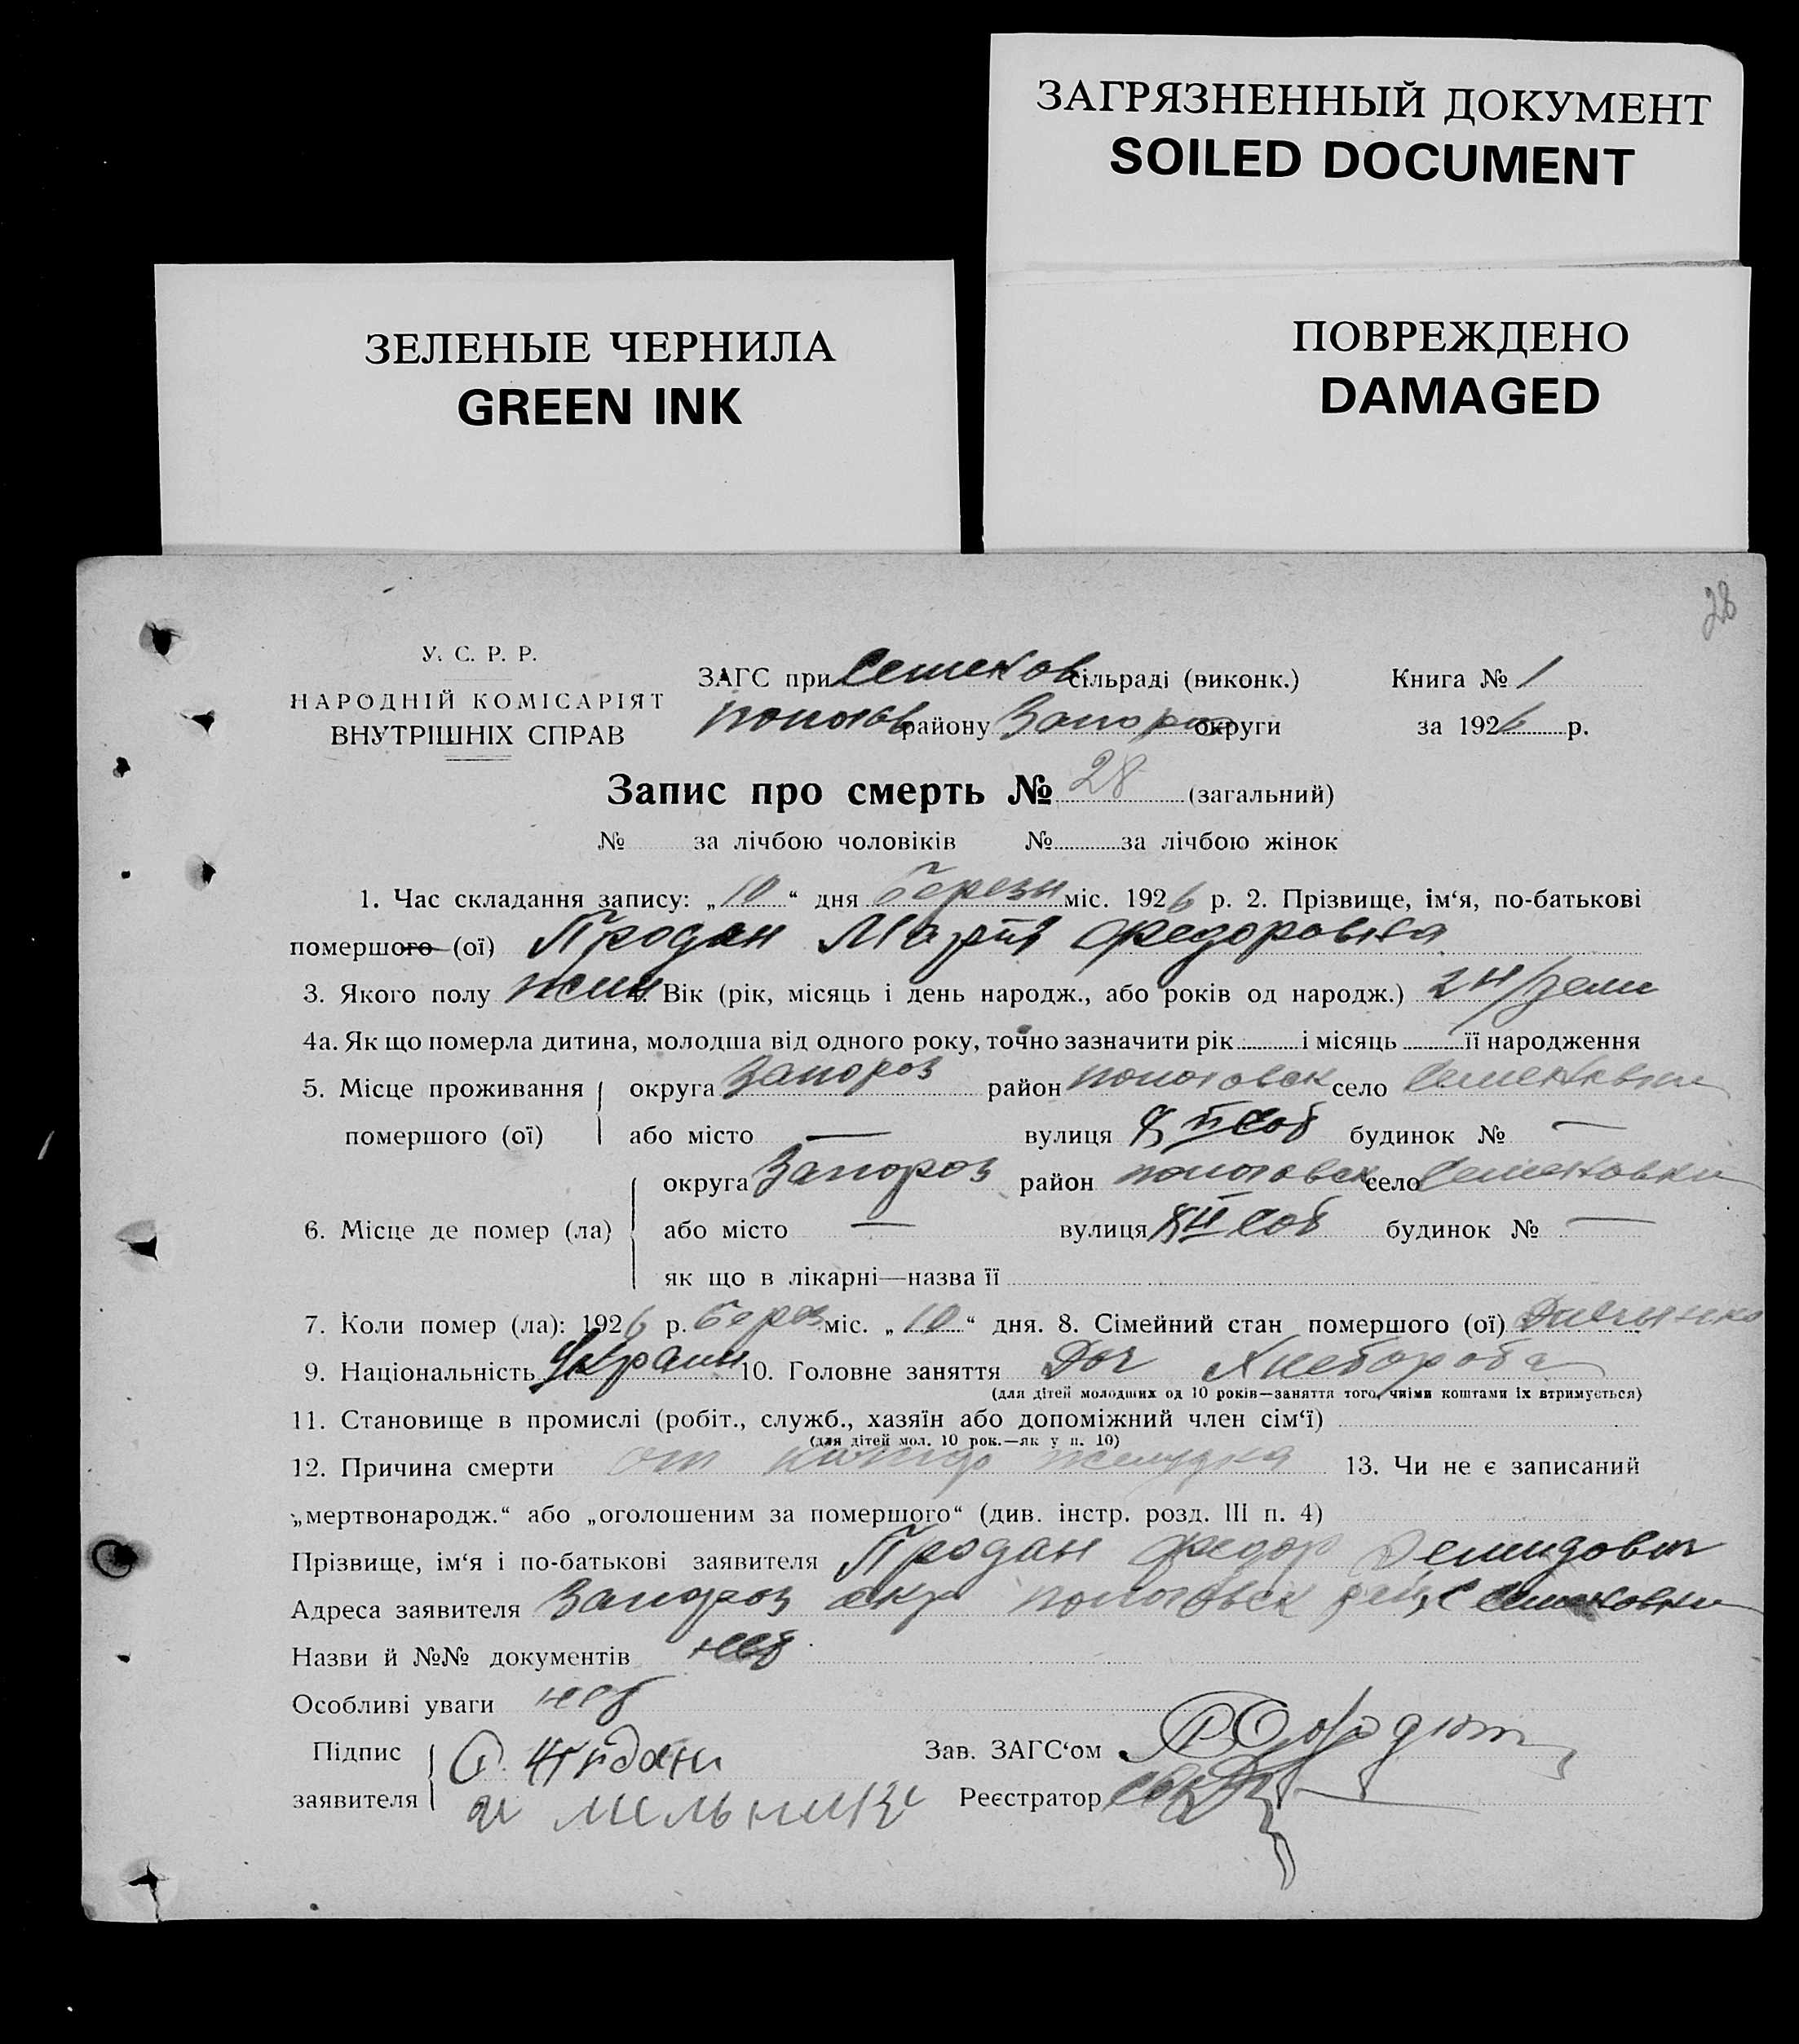 ЗАГРЯЗНЕННЫЙ ДОКУМЕНТ
SOILED DOCUMENT
ЗЕЛЕНЫЕ ЧЕРНИЛА
GREEN INK
ПОВРЕЖДЕНО
DAMAGED
28
У. С. Р. Р.
НАРОДНІЙ КОМІСАРІЯТ
ВНУТРІШНІХ СПРАВ
ЗАГС при Семенов сільраді (виконк.) Книга № 1
пологов району Запориз округи за 1926 р.
Запис про смерть № 28 (загальний)
№ за лічбою чоловіків № за лічбою жінок
1. Час складання запису: „10“ дня березн міс. 1926 р. 2. Прізвище, ім‘я, по-батькові
помершого (ої) Продан Марія Федоровна
3. Якого полу жин Вік (рік, місяць і день народж., або років од народж.) 2
4а. Як що померла дитина, молодша від одного року, точно зазначити рік і місяць її народження
5. Місце проживання округа Запороз район пологовск село Семеновки
помершого (ої) або місто — вулиця будинок № —
округа Запороз район пологовск село Семеновки
6. Місце де помер (ла) або місто — вулиця будинок № —
як що в лікарні—назва її
7. Коли помер (ла): 1926 р. берез міс. „10“ дня. 8. Сімейний стан помершого (ої)
9. Національність Украин 10. Головне заняття Доч Хлебороба
(для дітей молодших од 10 років—заняття того, чиїми коштами їх втримується)
11. Становище в промислі (робіт., служб., хазяїн або допоміжний член сім‘ї)
(для дітей мол. 10 рок.—як у п. 10)
12. Причина смерти от желудка 13. Чи не є записаний
„мертвонародж.“ або „оголошеним за помершого“ (див. інстр. розд. III п. 4)
Прізвище, ім‘я і по-батькові заявителя Продан Федор Демидович
Адреса заявителя Запороз окр пологовск рай с Семеновки
Назви й №№ документів
Особливі уваги
Підпис Зав. ЗАГС‘ом
заявителя Реєстратор